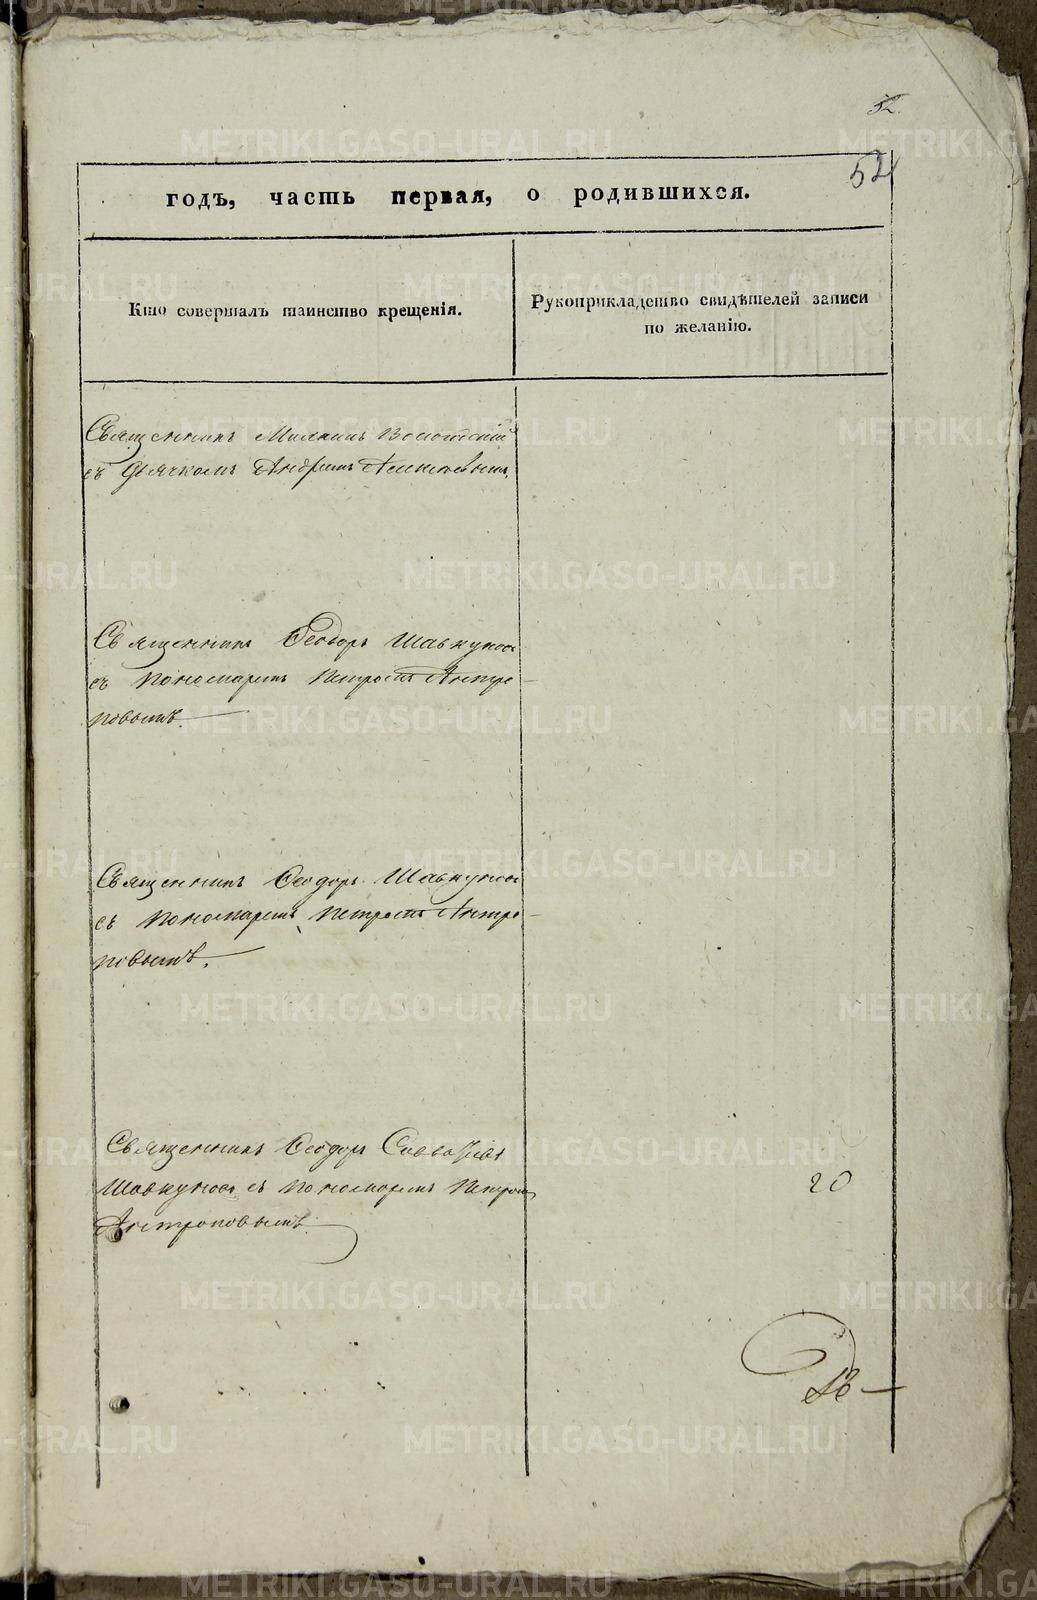 52.
52
годъ, часть первая, о родившихся.
Кто совершалъ таинство крещенія.
Рукоприкладство свидѣтелей записи
по желанію.
Священникъ
съ дьячкомъ Андреемъ
Священникъ Ѳеодоръ Шавкуновъ
съ пономаремъ Петромъ Антро-
повымъ.
Священникъ Ѳеодоръ Шавкуновъ
съ пономаремъ Петромъ Антро-
повымъ.
Священникъ Ѳеодоръ
Шавкуновъ съ пономаремъ Петромъ
Антроповымъ.
20
METRIKI.GASO-URAL.RU